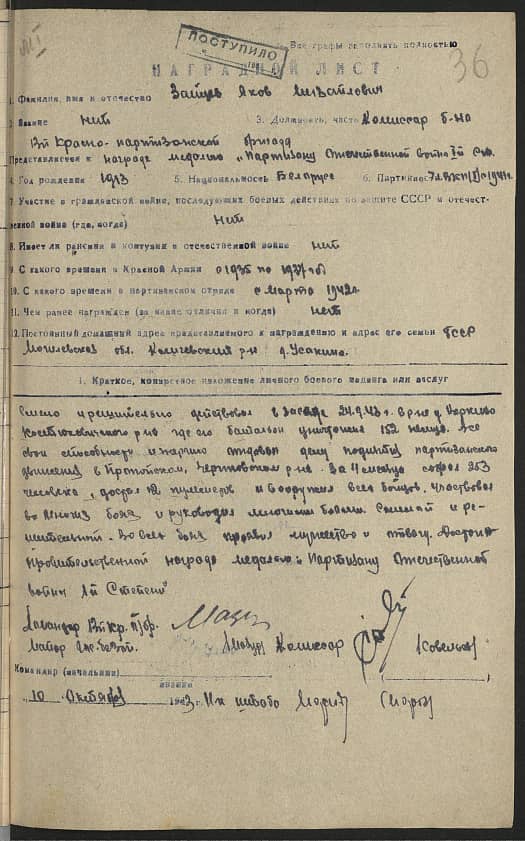 36
ПОСТУПИЛО
Все графы заполнять полностью
НАГРАДНОЙ ЛИСТ
1. Фамилия, имя и отчество Зайцев Яков Михайлович
2. Звание нет 3. Должность, часть Комиссар б-на
13й Красно-партизанской бригады
Представляется к награде медалью „Партизану Отечественной войны" 1й ст.
4. Год рождения 1913 5. Национальность Беларус 6. Партийность Чл. ВКП(б) с 1941г.
7. Участие в гражданской войне, последующих боевых действиях по защите СССР и отечест-
венной войне (где, когда) нет
8. Имеет ли ранения и контузии в отечественной войне нет
9. С какого времени в Красной Армии с 1935 по 1937 г.
10. С какого времени в партизанском отряде с марта 1942г.
11. Чем ранее награжден (за какие отличия и когда) нет
12. Постоянный домашний адрес представляемого к награждению и адрес его семьи БССР
Могилевская обл. Кличевский р-н д. Усакино.
1. Краткое, конкретное изложение личного боевого подвига или заслуг
Смело и решительно действовал в засаде 24.9.43 г. в р-не д.
Костюковичского р-на где его батальон уничтожил 152 немца. Все
свои способности и отдовал делу поднятия партизанского
движения в Пропойском, Чериковском р-не. За 4 месяца собрал 253
человека, достал 12 пулеметов и вооружил всех бойцов. Участвовал
во многих боях и руководил многими боями. Смелый и ре-
шительный. Во всех боях проявил мужество и отвагу. Достоин
правительственной награды медалью „Партизану Отечественной
войны 1й степени"
Командир 13й Кр. п/бр.
Майор Гос. Без.
Комиссар
Командир (начальник)
звание
„10" Октября 1943 г. Нач штаба